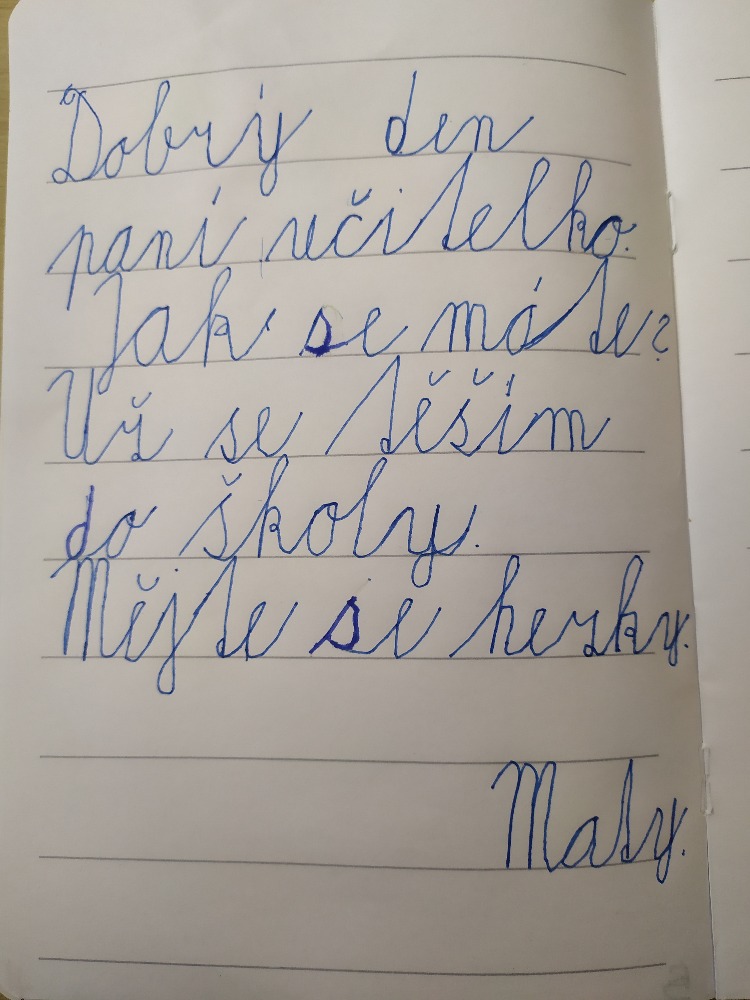 Dobrý den
paní učitelko.
Jak se máte?
Už se těším
do školy.
Mějte se hezky.
Maty.